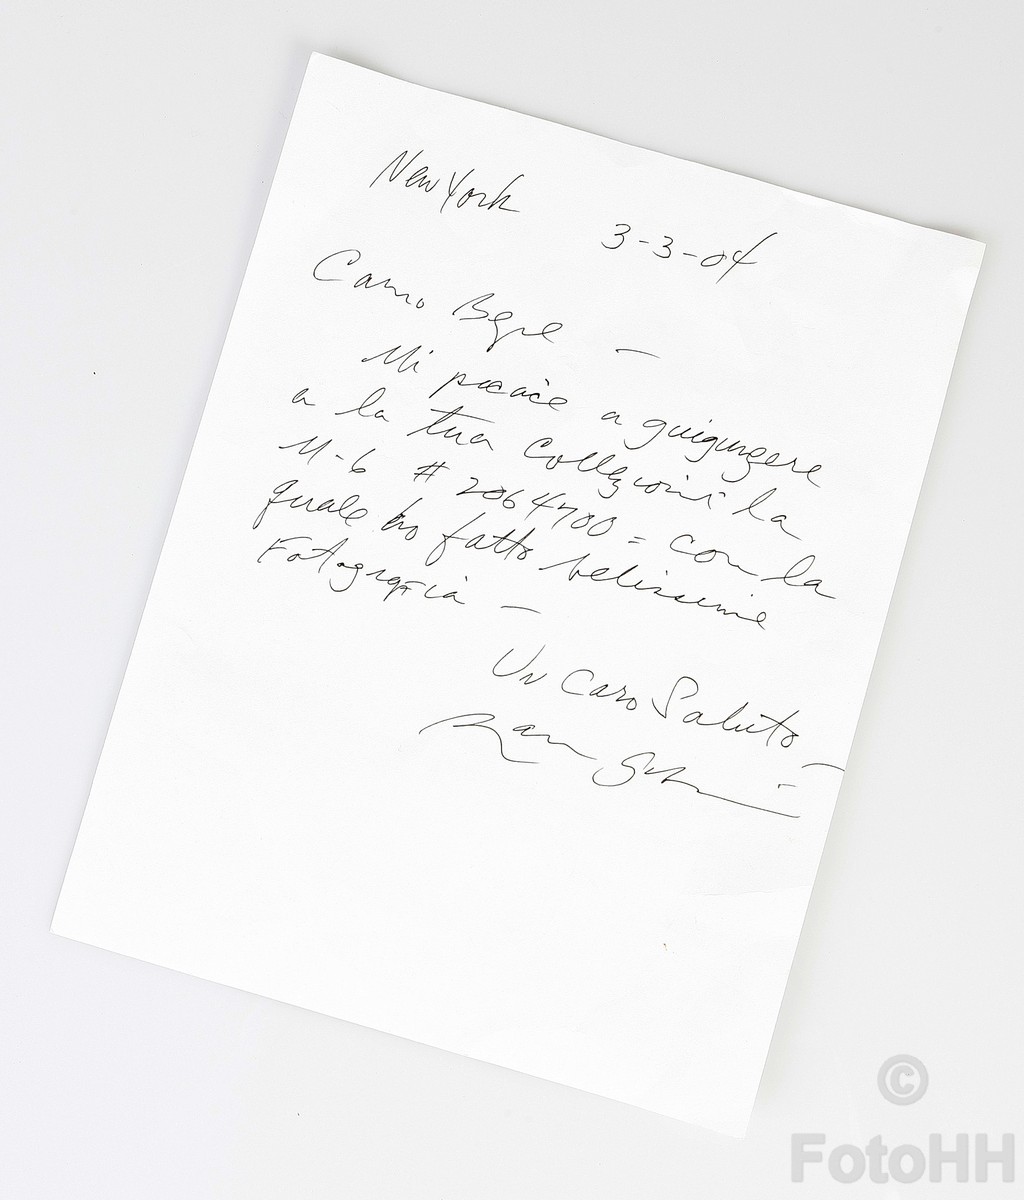 New York
3-3-04
Caro Bepe –
Mi piacie a guigungere
a la tua collezioni la
M-6 # 2064700 = con la
quale ho fatto belissime
Fotografia –
Un Caro Saluto –
©
FotoHH